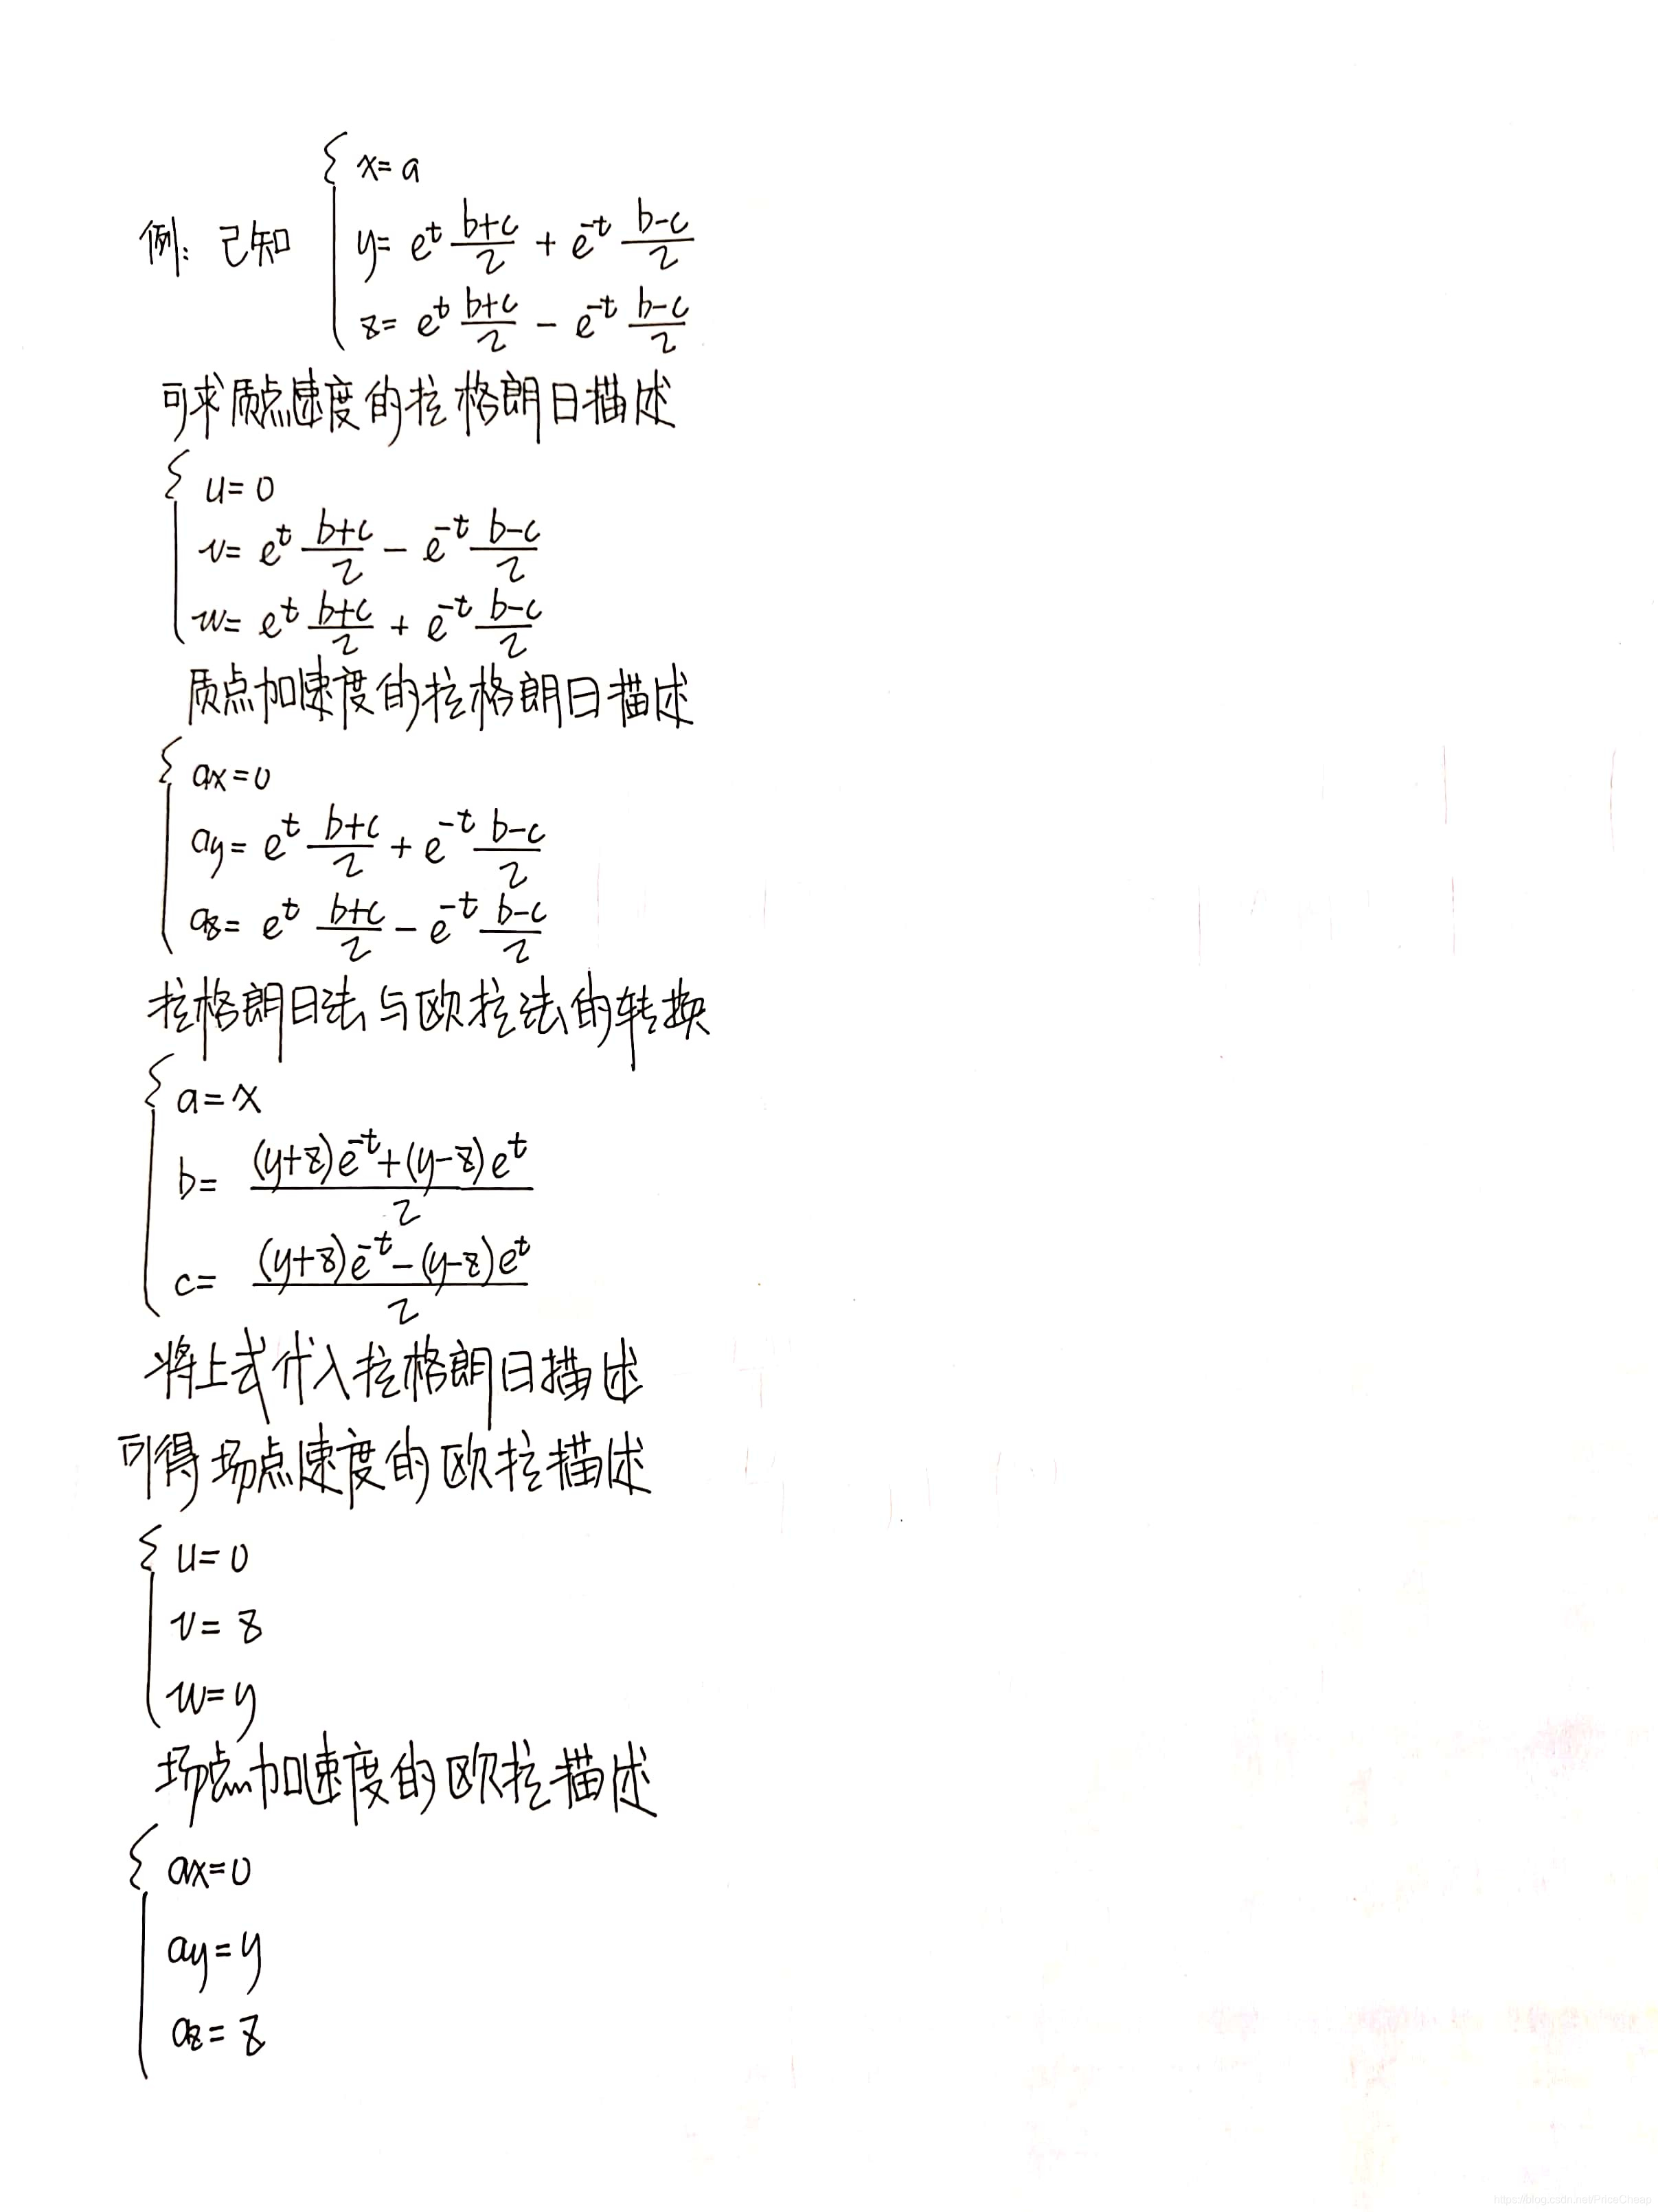 例: 已知 { x=a
y= e^t (b+c)/2 + e^-t (b-c)/2
z= e^t (b+c)/2 - e^-t (b-c)/2
可求质点速度的拉格朗日描述
{ u=0
v= e^t (b+c)/2 - e^-t (b-c)/2
w= e^t (b+c)/2 + e^-t (b-c)/2
质点加速度的拉格朗日描述
{ ax=0
ay= e^t (b+c)/2 + e^-t (b-c)/2
az= e^t (b+c)/2 - e^-t (b-c)/2
拉格朗日法与欧拉法的转换
{ a=x
b= ((y+z)e^-t+(y-z)e^t)/2
c= ((y+z)e^-t-(y-z)e^t)/2
将上式代入拉格朗日描述
可得场点速度的欧拉描述
{ u=0
v=z
w=y
场点加速度的欧拉描述
{ ax=0
ay=y
az=z
https://blog.csdn.net/PriceCheap